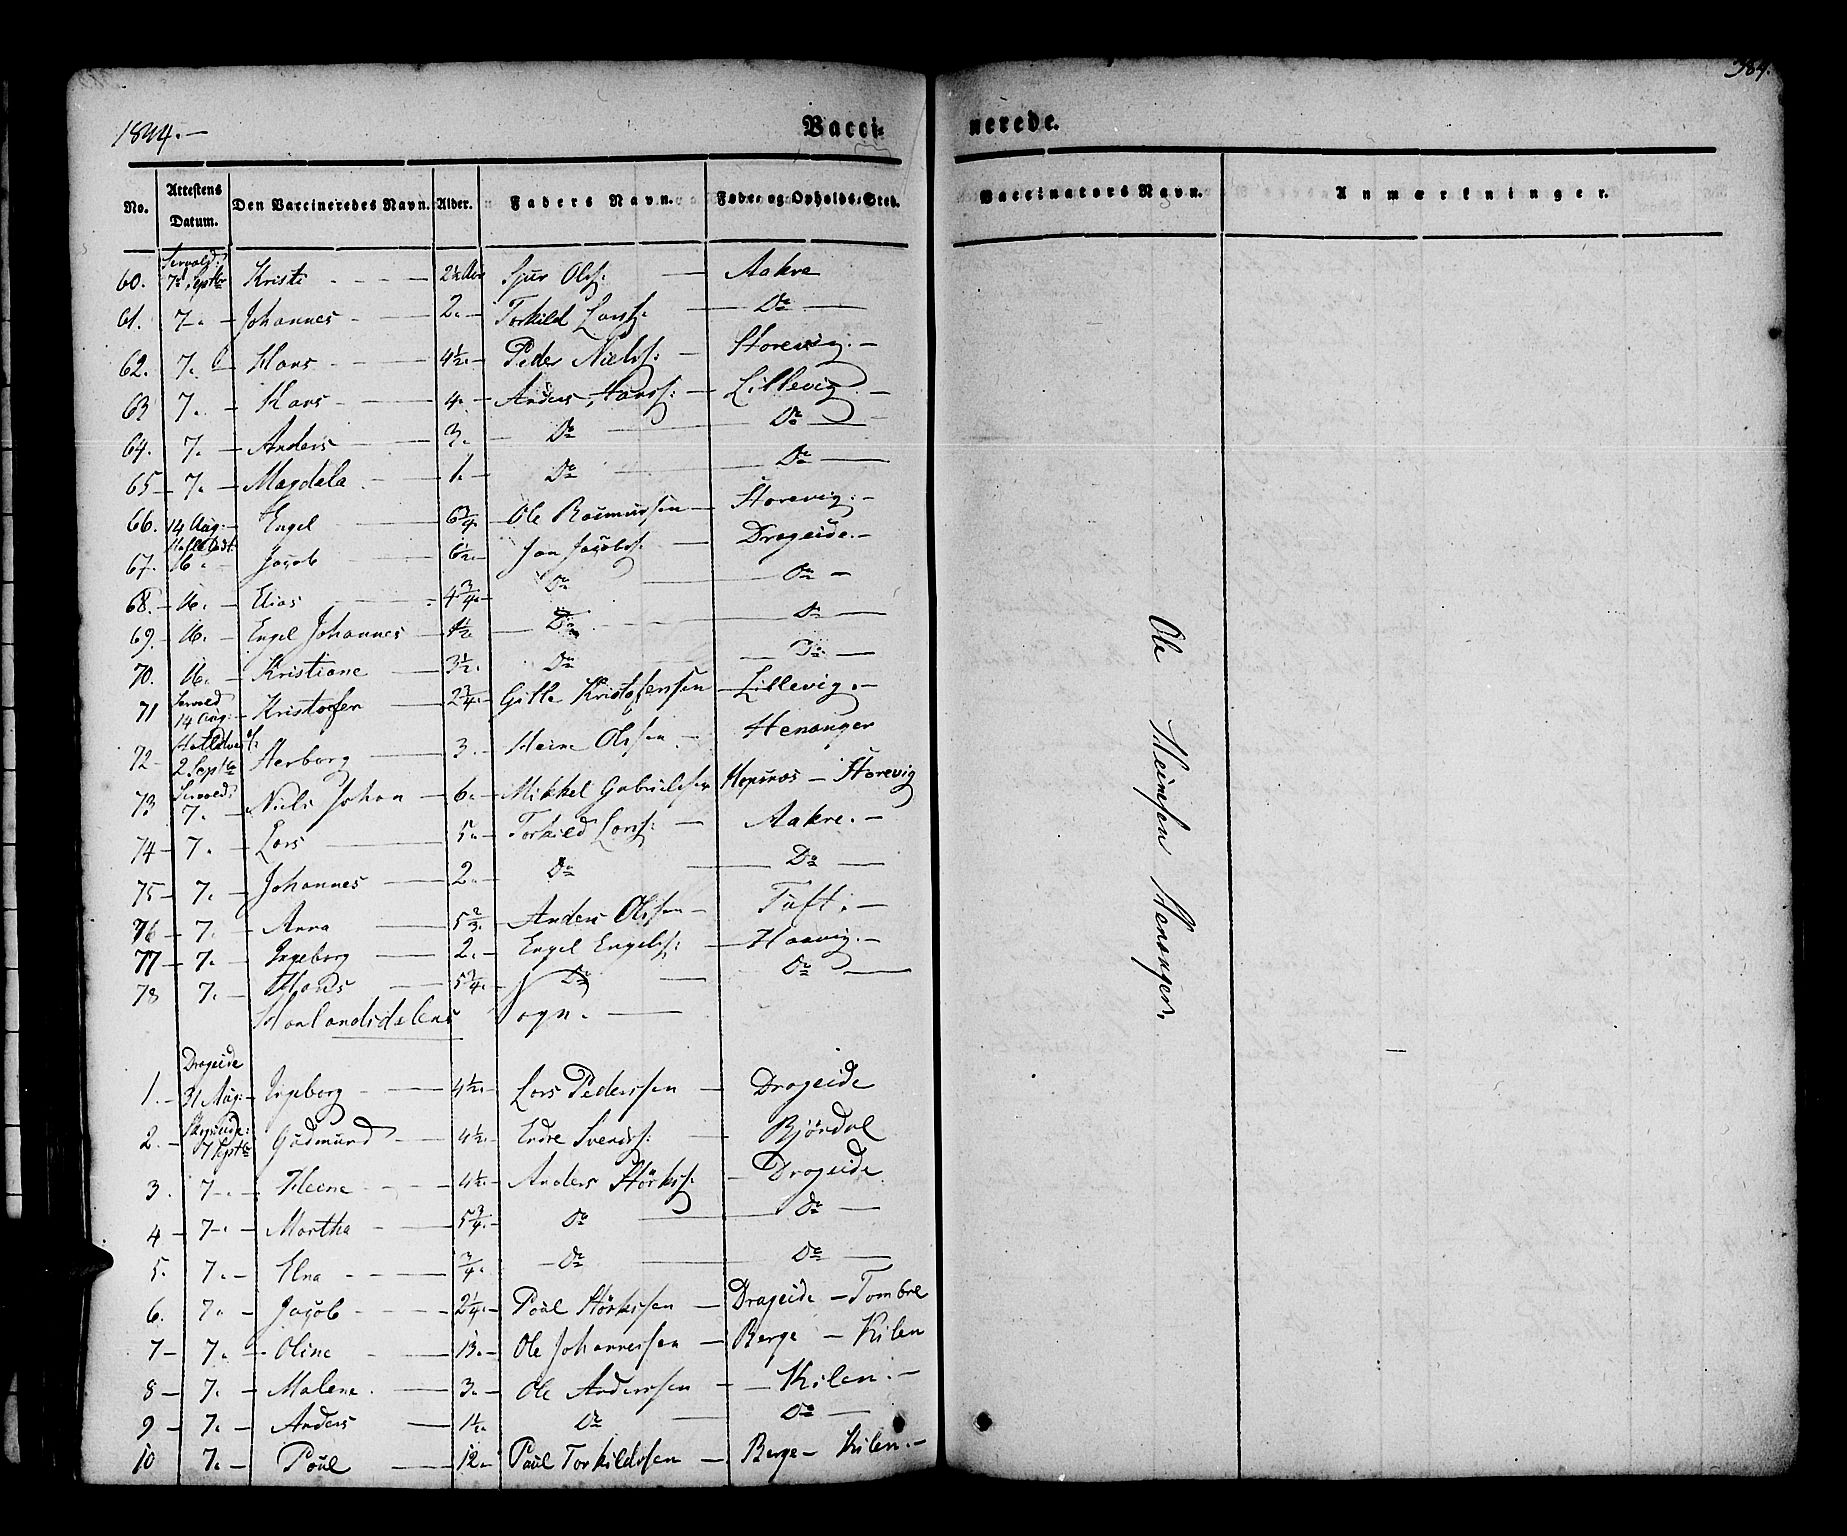 384.
1844.—
Vacci- nerede.
No. Attestens Datum. Den Vaccineredes Navn. Alder. Faders Navn. Føde- og Opholds-Sted. Vaccinators Navn. Anmærkninger.
60. 7d Septbr Kristi 2½ Aar Sjur Olss: Aakre
61. 7. Johannes 2. Torkild Larss: Do
62. 7. Hans 4½. Peder Nielss: Storevig.
63 7. Hans 4. Anders Hanss: Lillevig
64. 7. Anders 3. Do Do
65 7. Magdela 1. Do Do
66. 14 Aug: Engel 6¾. Ole Rasmussen Storevig.
67. 16. Jacob 6½. Jon Jacobs: Drageide.
68. 16. Elias 4¾. Do Do
69. 16. Engel Johannes 1½ Do Do
70. 16. Kristiane 3½. Do Do
71 14 Aug: Kristofer 2¾. Gitle Kristofersen Lillevig.
72 2 Septbr Herborg 3. Heine Olssen Henanger
73 7. Niels Johan 6. Mikkel Gabrielsen Hopsnes — Storevig
74 7. Lars 5. Torkild Larss: Aakre.
75 7. Johannes 2. Do Do
76 7. Anna 5⅔. Anders Olssen Tuft.
77 7. Ingeborg 2. Engel Engelss: Haavig.
78 7. Hans 5¾. Do Do
Haalandsdalens Sogn.
Drageide
1. 31 Aug: Ingeborg 4½. Lars Pederssen Drageide
2. 7 Septbr Gudmund 4½. Endre Svends: Björdal
3. 7. Heine 4½. Anders Störkss. Drageide
4 7. Martha 5¾. Do Do
5. 7. Ana ¾. Do Do
6. 7. Jacob 2¼. Poul Störkssen Drageide — Tombre
7 7. Oline 13. Ole Johannessen Berge — Kilen
8 7. Malene. 3. Ole Anderssen Kilen.
9 7. Anders 1½. Do Do
10 7. Poul 12. Paul Torkildssen Berge — Kilen.
Ole Heinesen Henanger.